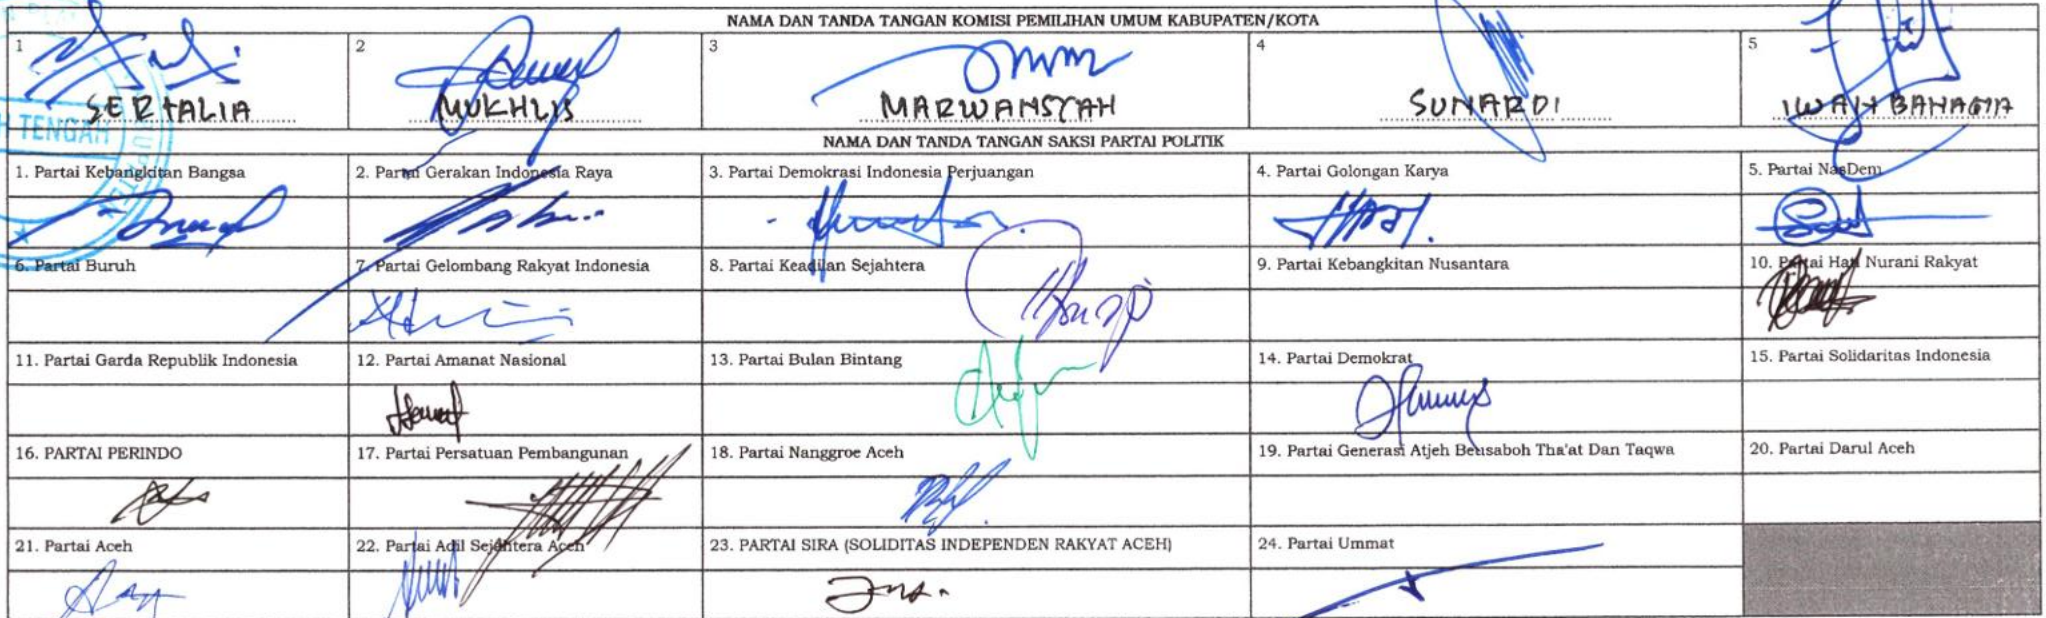 NAMA DAN TANDA TANGAN KOMISI PEMILIHAN UMUM KABUPATEN/KOTA
1 2 3 4 5
SERTALIA MUKHLIS MARWANSYAH SUNARDI IWAN BAHAGIA
H TENGAH
NAMA DAN TANDA TANGAN SAKSI PARTAI POLITIK
1. Partai Kebangkitan Bangsa 2. Partai Gerakan Indonesia Raya 3. Partai Demokrasi Indonesia Perjuangan 4. Partai Golongan Karya 5. Partai NasDem
6. Partai Buruh 7. Partai Gelombang Rakyat Indonesia 8. Partai Keadilan Sejahtera 9. Partai Kebangkitan Nusantara 10. Partai Hati Nurani Rakyat
11. Partai Garda Republik Indonesia 12. Partai Amanat Nasional 13. Partai Bulan Bintang 14. Partai Demokrat 15. Partai Solidaritas Indonesia
16. PARTAI PERINDO 17. Partai Persatuan Pembangunan 18. Partai Nanggroe Aceh 19. Partai Generasi Atjeh Beusaboh Tha'at Dan Taqwa 20. Partai Darul Aceh
21. Partai Aceh 22. Partai Adil Sejahtera Aceh 23. PARTAI SIRA (SOLIDITAS INDEPENDEN RAKYAT ACEH) 24. Partai Ummat